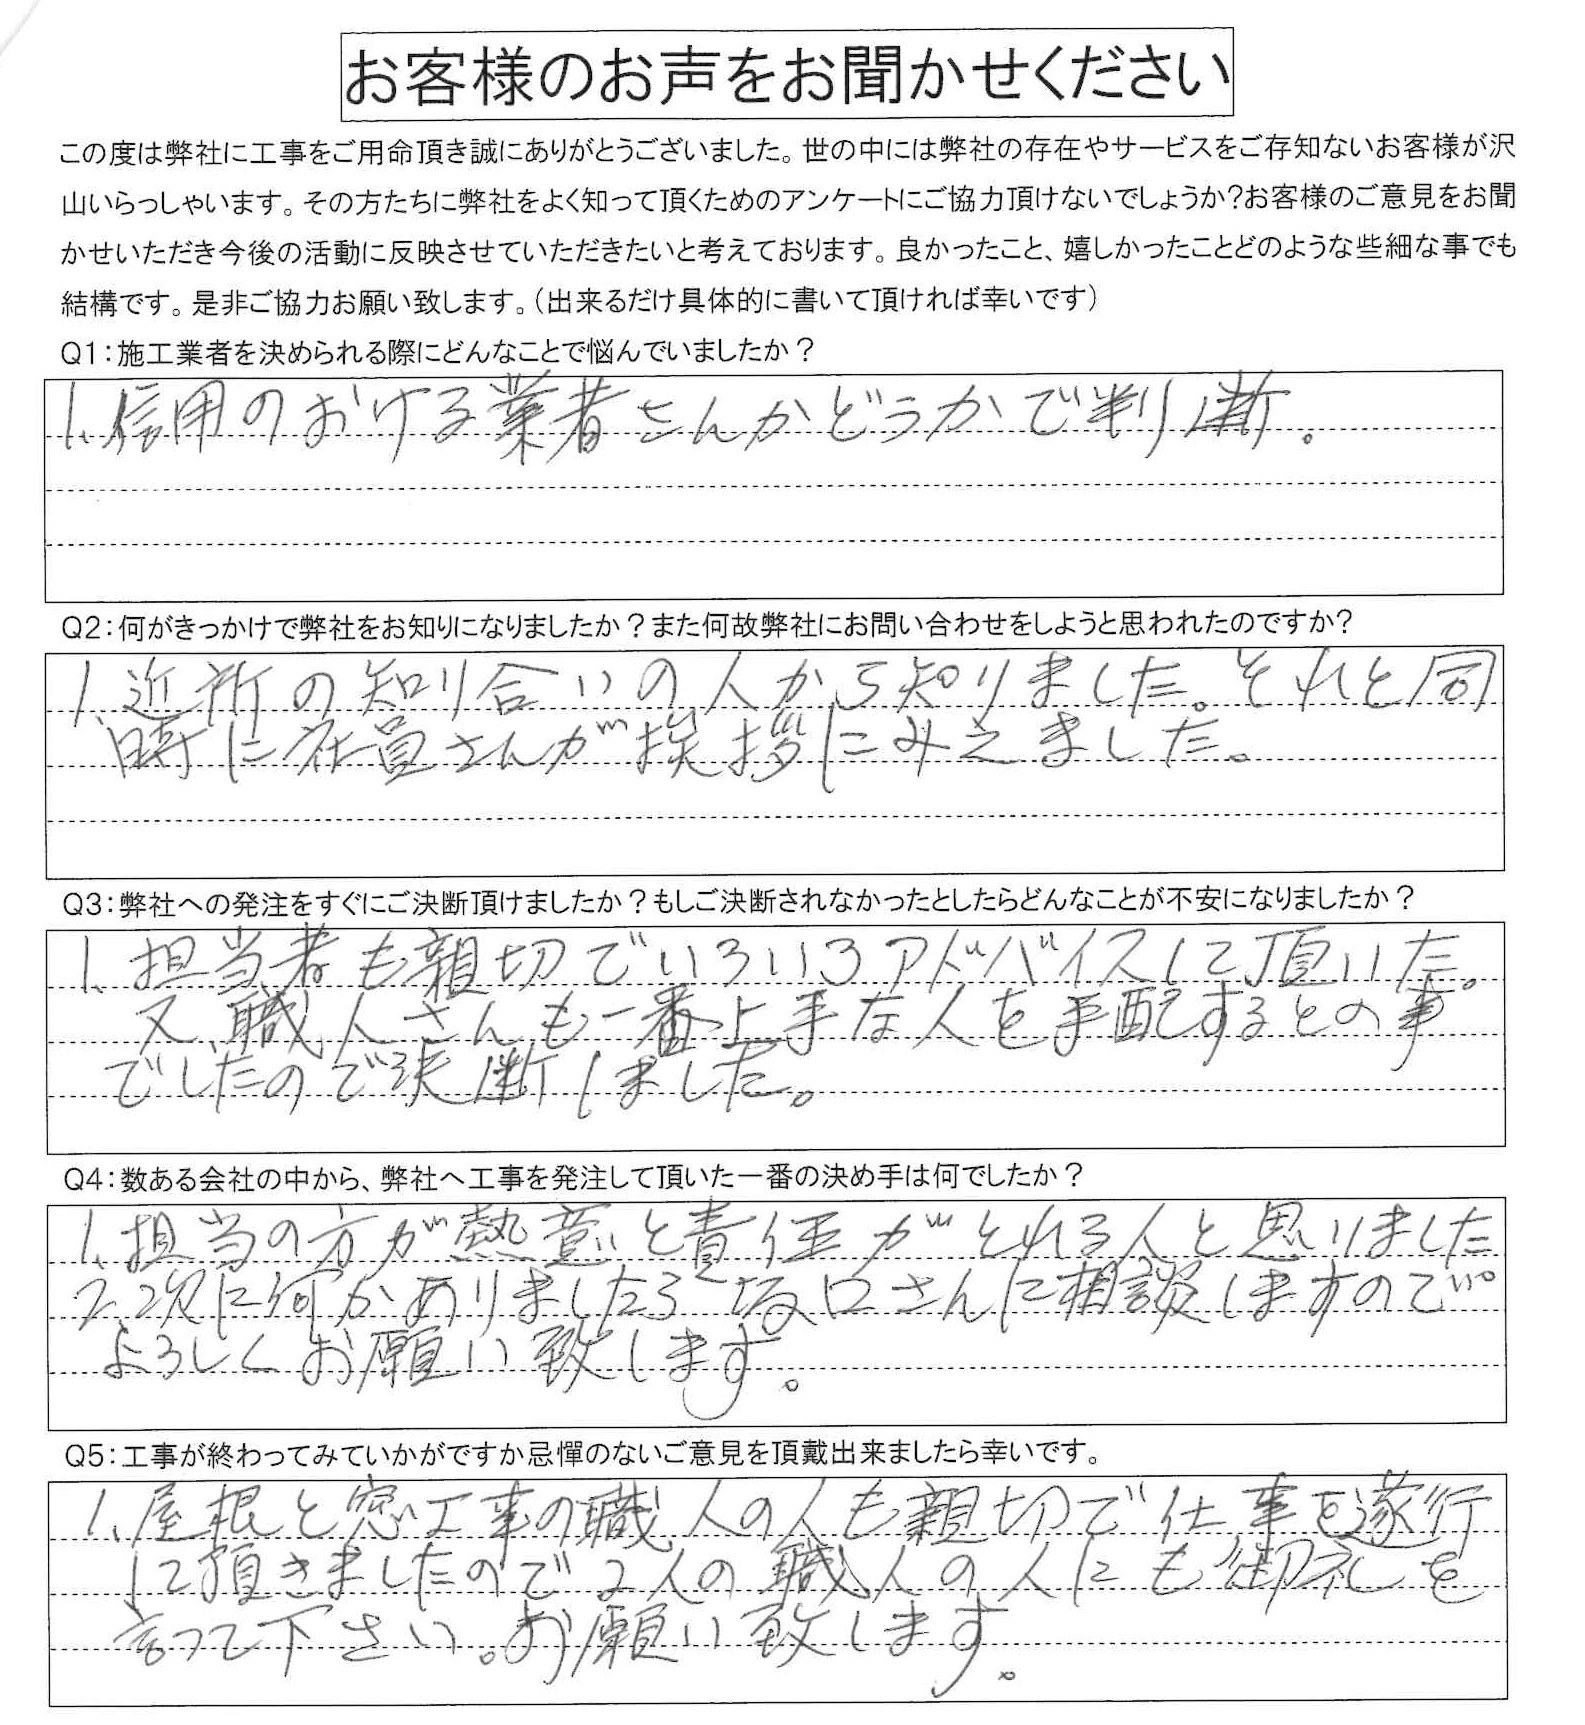 お客様のお声をお聞かせください
この度は弊社に工事をご用命頂き誠にありがとうございました。世の中には弊社の存在やサービスをご存知ないお客様が沢
山いらっしゃいます。その方たちに弊社をよく知って頂くためのアンケートにご協力頂けないでしょうか?お客様のご意見をお聞
かせいただき今後の活動に反映させていただきたいと考えております。良かったこと、嬉しかったことどのような些細な事でも
結構です。是非ご協力お願い致します。(出来るだけ具体的に書いて頂ければ幸いです)
Q1:施工業者を決められる際にどんなことで悩んでいましたか?
1.信用のおける業者さんかどうかで判断。
Q2:何がきっかけで弊社をお知りになりましたか?また何故弊社にお問い合わせをしようと思われたのですか?
1.近所の知り合いの人から知りました。それと同
時に社員さんが挨拶にみえました。
Q3:弊社への発注をすぐにご決断頂けましたか?もしご決断されなかったとしたらどんなことが不安になりましたか?
1.担当者も親切でいろいろアドバイスして頂いた。
又、職人さんも一番上手な人を手配するとの事
でしたので決断しました。
Q4:数ある会社の中から、弊社へ工事を発注して頂いた一番の決め手は何でしたか?
1.担当の方が熱意と責任がとれる人と思いました。
2.次に何かありましたら坂口さんに相談しますので
よろしくお願い致します。
Q5:工事が終わってみていかがですか忌憚のないご意見を頂戴出来ましたら幸いです。
1.屋根と窓工事の職人の人も親切で仕事を遂行
して頂きましたので2人の職人の人にも御礼を
言って下さい。お願い致します。